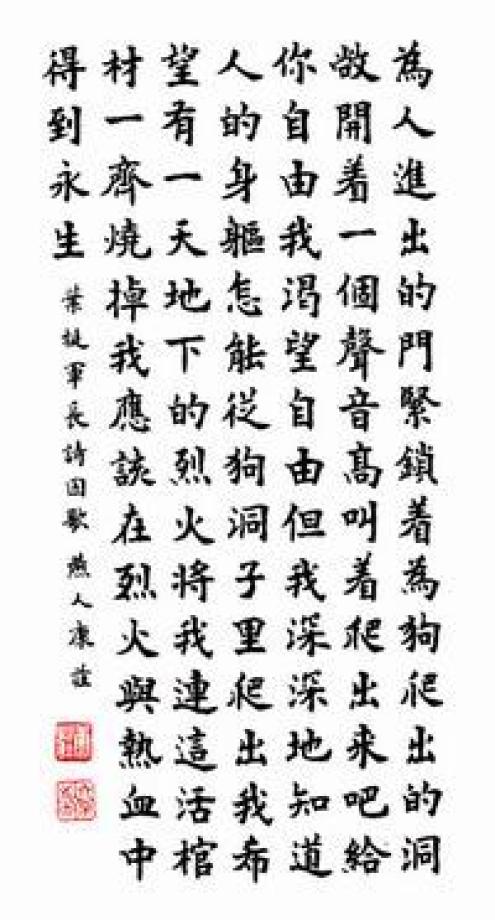 為人進出的門緊鎖着為狗爬出的洞
敞開着一個聲音高叫着爬出来吧給
你自由我渴望自由但我深深地知道
人的身軀怎能從狗洞子里爬出我希
望有一天地下的烈火將我連這活棺
材一齊燒掉我應該在烈火與熱血中
得到永生 葉挺軍長詩囚歌 燕人康